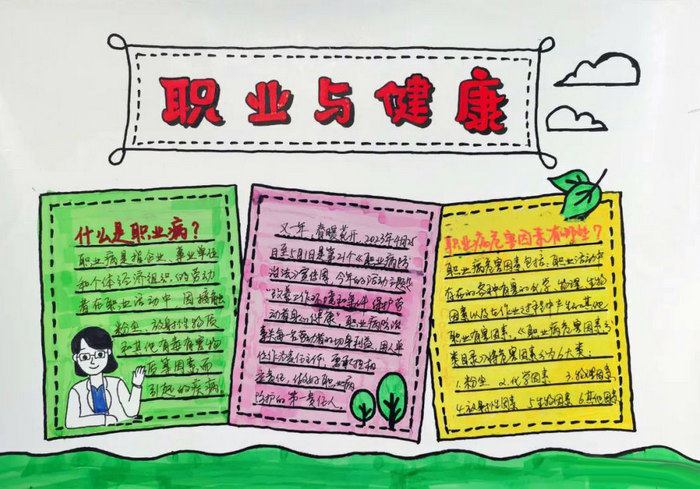 职业与健康
什么是职业病?
职业病是指企业、事业单位
和个体经济组织的劳动
者在职业活动中 因接触
粉尘、放射性物质
和其他有毒有害物
害因素而
引起的疾病
又一年 春暖花开, 2023年4月25
日至5月1日是第21个《职业病防
治法》宣传周, 今年的活动主题是
"改善工作环境和条件 保护劳
动者身心健康" 职业病防治
事关每一名劳动者的切身利益, 用人单
位作为责任主体, 要承担相
应责任, 做好职业病
防护的第一责任人.
职业病危害因素有哪些?
职业病危害因素包括: 职业活动中
存在的各种有害的化学、物理、生物
因素以及在作业过程中产生的其他
职业有害因素.《职业病危害因素分
类目录》将危害因素分为6大类:
1.粉尘 2.化学因素 3.物理因素
4.放射性因素 5.生物因素 6.其他因素